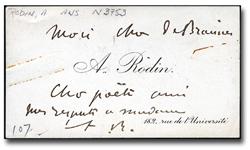 RODIN, A ANS N3753
Moi cher
A. Rodin.
Cher poète ami
mes respects a madame
182, rue de l'Université
107.